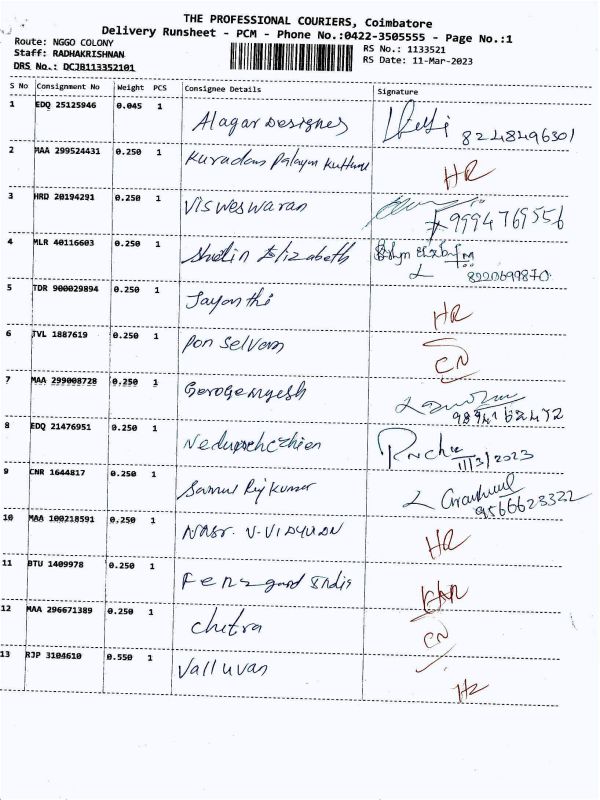 THE PROFESSIONAL COURIERS, Coimbatore
Delivery Runsheet - PCM - Phone No.:0422-3505555 - Page No.:1
Route: NGGO COLONY
Staff: RADHAKRISHNAN
DRS No.: DCJB113352101
RS No.: 1133521
RS Date: 11-Mar-2023
S No Consignment No Weight PCS Consignee Details Signature
1 EDQ 25125946 0.045 1 Alagar Designes 8248496301
2 MAA 299524431 0.250 1 HR
3 HRD 20194291 0.250 1 Visweswaran 9994769556
4 MLR 40116603 0.250 1 Elizabeth 8220699870
5 TDR 900029894 0.250 1 Jayanthi HR
6 TVL 1887619 0.250 1 Pon Selvam CN
7 MAA 299008728 0.250 1
8 EDQ 21476951 0.250 1 11/3/2023
9 CNR 1644817 0.250 1 9566623322
10 MAA 100218591 0.250 1 HR
11 BTU 1409978 0.250 1 India
12 MAA 296671389 0.250 1 Chitra CN
13 RJP 3104610 0.550 1 Valluvan HR